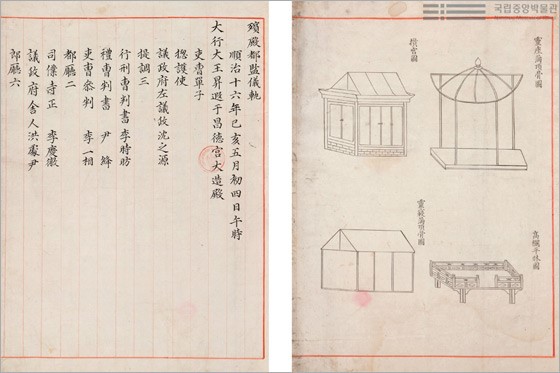 殯殿都監儀軌
順治十六年己亥五月初四日午時
大行大王昇遐于昌德宮大造殿
吏曹單子
摠護使
議政府左議政沈之源
提調三
行刑曹判書李時昉
禮曹判書 尹絳
吏曹參判 李一相
都廳二
司僕寺正 李慶徽
議政府舍人洪處尹
郎廳六
국립중앙박물관
靈座滿頂骨圖
攢宮圖
高欄平牀圖
靈寢滿頂骨圖